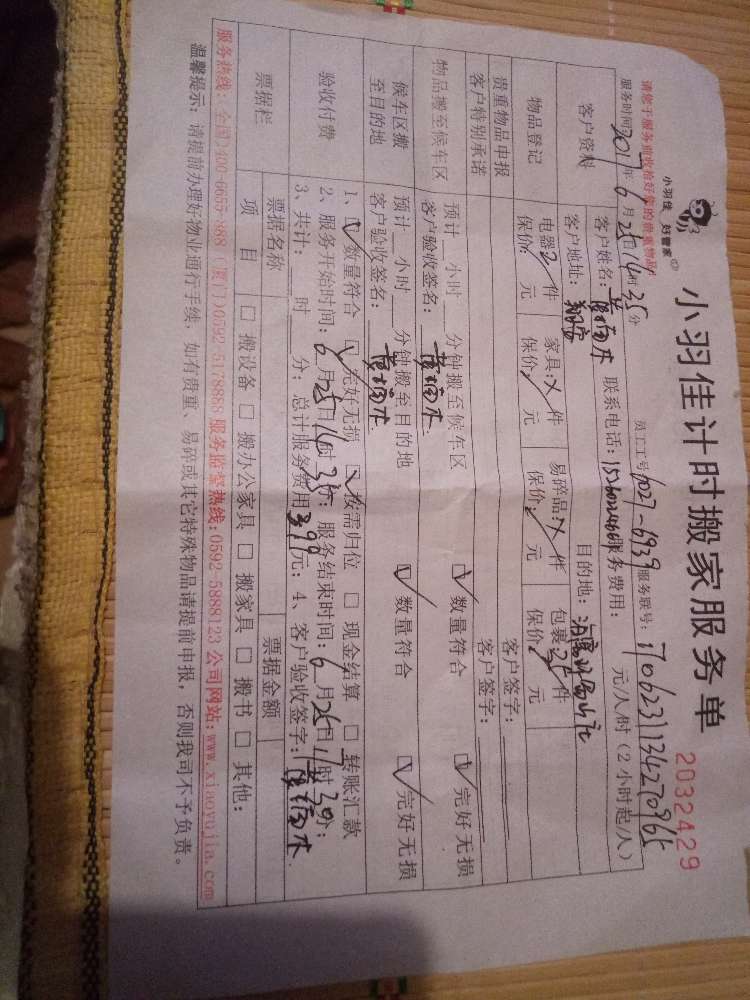 小羽佳计时搬家服务单
2032429
小羽佳 好管家
请您于服务前收拾好您的贵重物品!
服务时间:2017年6月25日14时35分 员工工号:1027-6939 服务联号:
客户资料 客户姓名: 联系电话: 服务费用: 元/人/时(2小时起/人)
客户地址:翔安 目的地:
物品登记 电器2件 家具:件 易碎品:件 包裹件
保价:元 保价:元 保价:元 保价:元
贵重物品申报 客户签字:
客户特别承诺 客户签字:
物品搬至候车区 预计 小时 分钟搬至候车区 ☑数量符合 ☑完好无损
客户验收签名:
候车区搬至目的地 预计 小时 分钟搬至目的地 ☑数量符合 ☑完好无损
客户验收签名:
验收付费 1、☑数量符合 ☑完好无损 ☑按需归位 □现金结算 □转账汇款
2、服务开始时间:6月25日14时35分;服务结束时间:6月25日17时30分;
3、共计: 时 分;总计服务费用399元;4、客户验收签字:
票据栏 票据名称 票据金额
项目 □搬设备 □搬办公家具 □搬家具 □搬书 □其他:
服务热线:全国)400-6655-888 (厦门)0592-5178888 服务监督热线:0592-5888123 公司网站:www.xiaoyujia.com
温馨提示:请提前办理好物业通行手续,如有贵重、易碎或其它特殊物品请提前申报,否则我司不予负责。